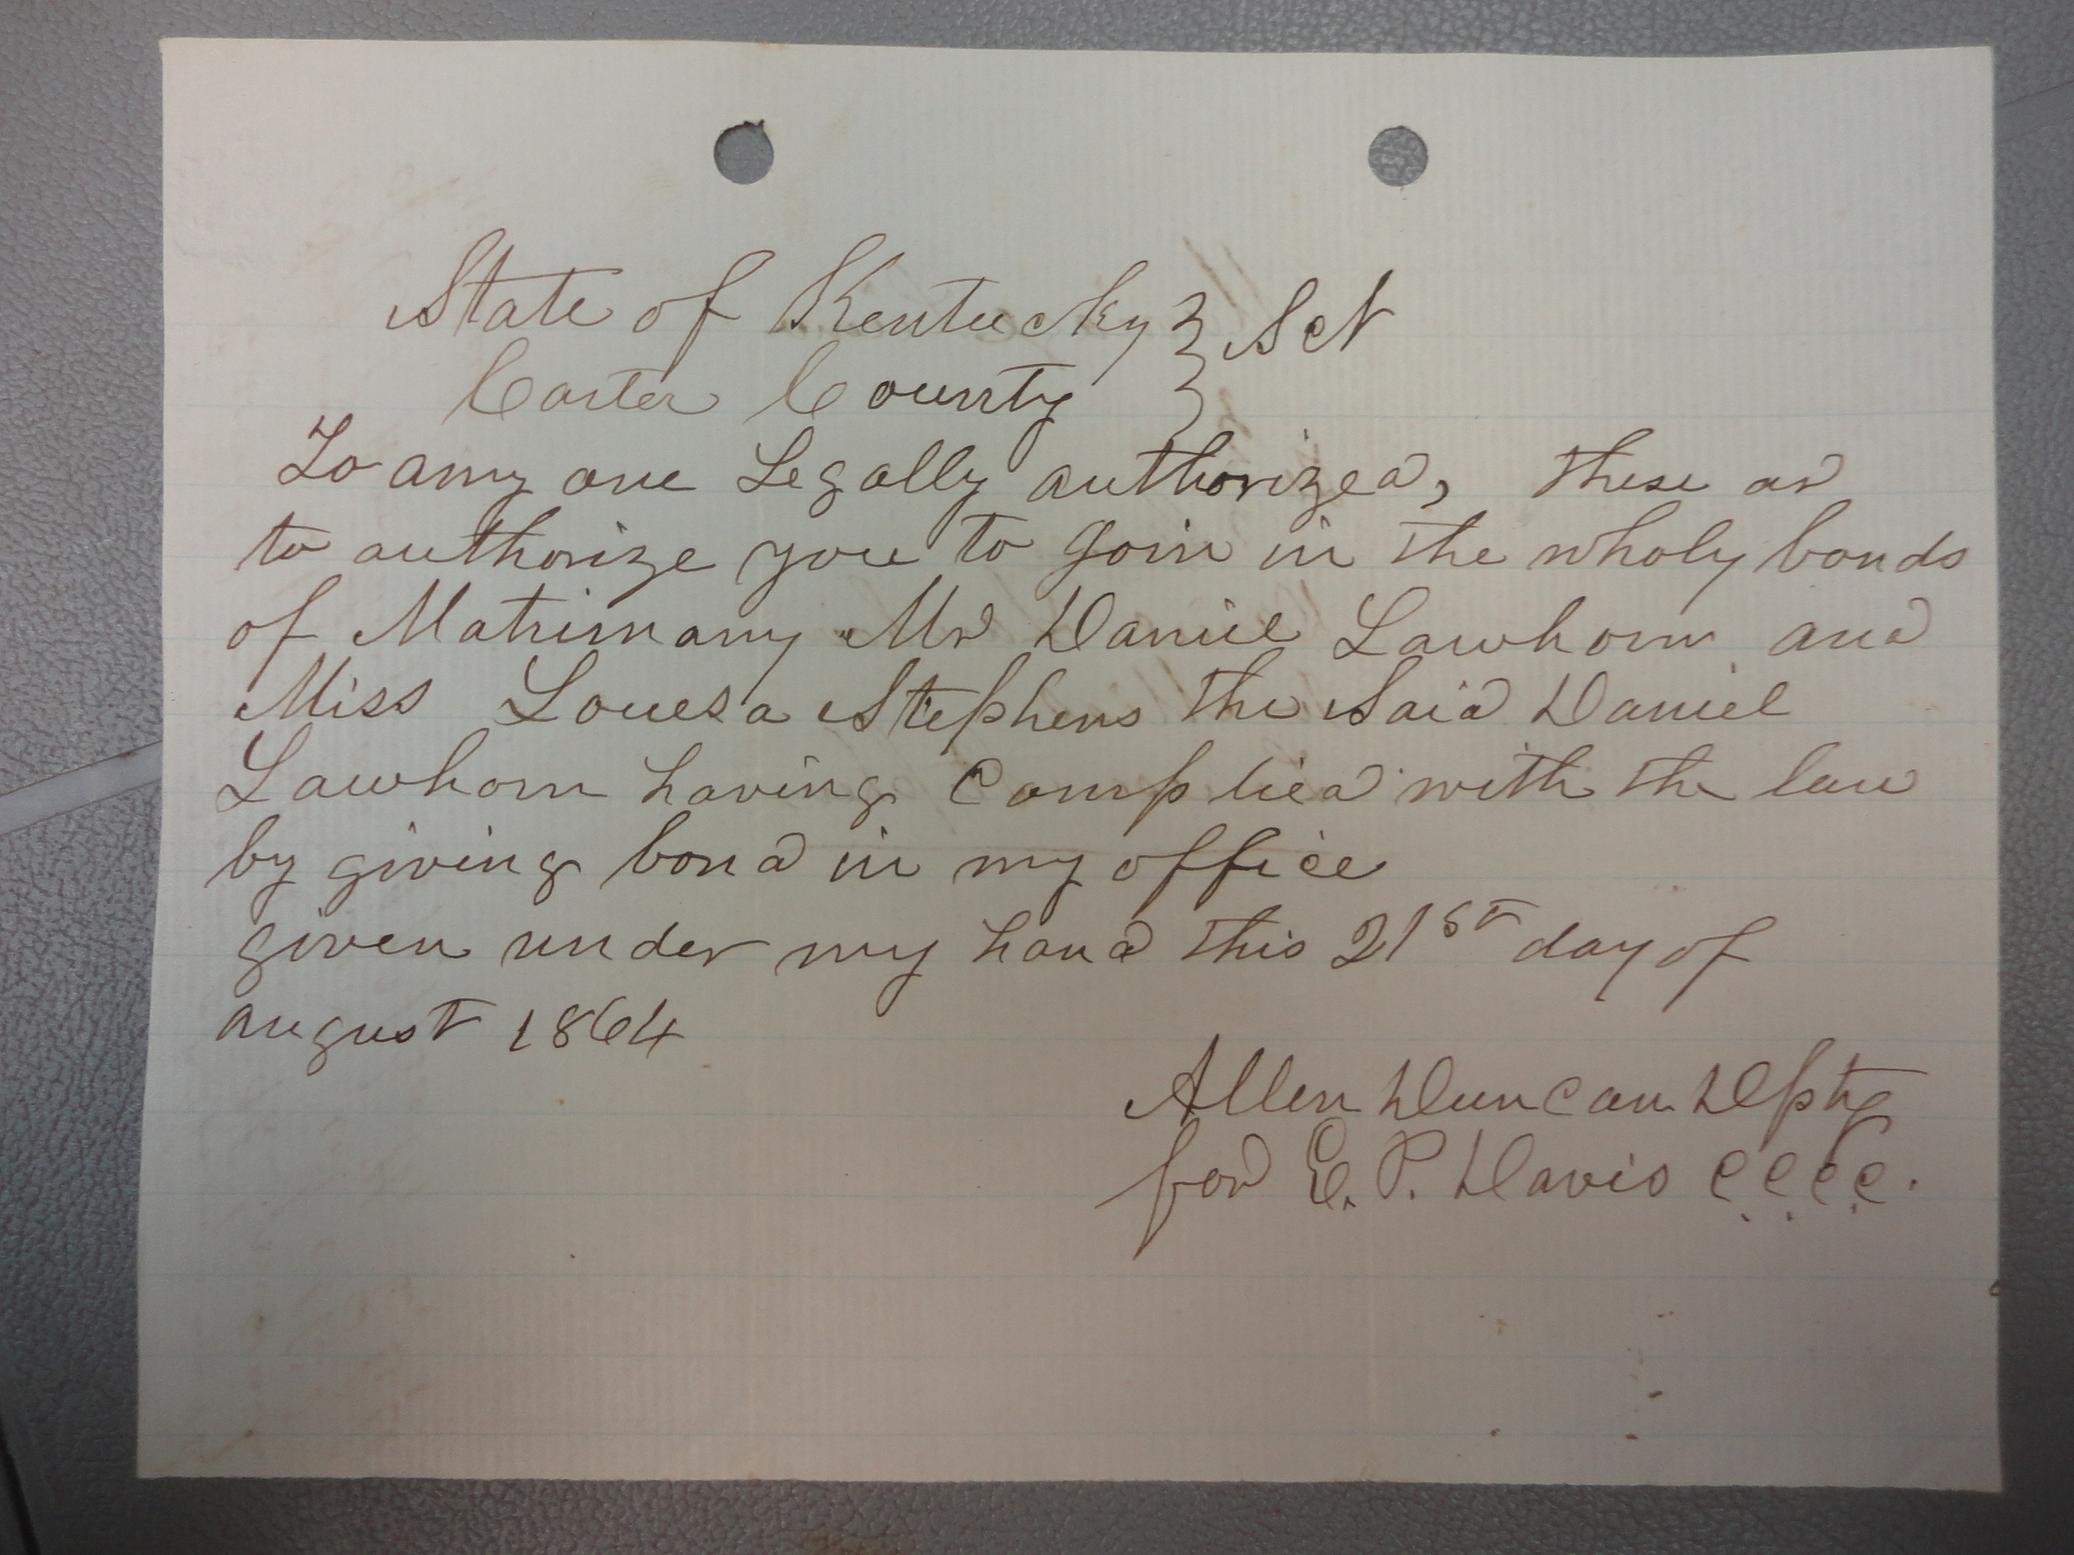 State of Kentucky } Sct
Carter County }
To any one Legally authorized, these ar
to authorize you to Join in the wholy bonds
of Matrimony Mr Daniel Lawhorn and
Miss Louesa Stephens the Said Daniel
Lawhorn having Complied with the law
by giving bond in my office
given under my hand this 21st day of
august 1864
Allen Duncan Dpty
for E. P. Davis C C C C.